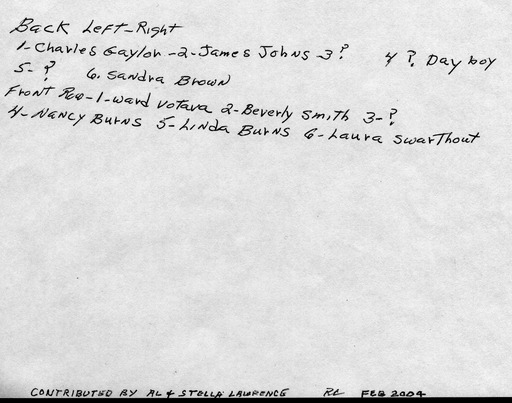 Back Left-Right
1-Charles Gaylor-2-James Johns-3? 4 ?. Day boy
5-? 6. Sandra Brown
Front Row-1-Ward Votava 2-Beverly Smith 3-?
4-Nancy Burns 5-Linda Burns 6-Laura Swarthout
CONTRIBUTED BY AL & STELLA LAWRENCE RC FEB 2004